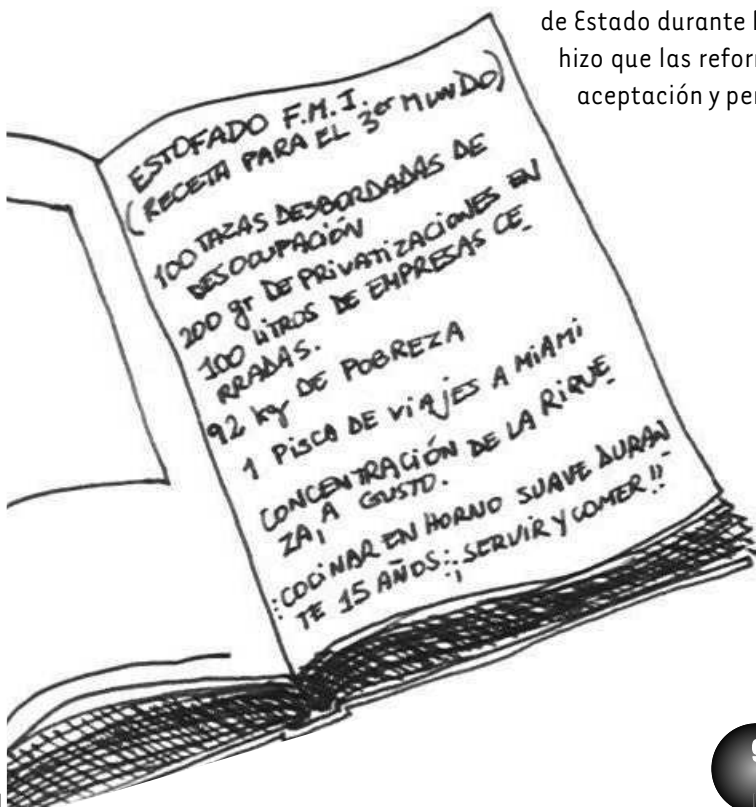 de Estado durante
hizo que las refor
aceptación y per
ESTOFADO F.M.I.
(RECETA PARA EL 3er MUNDO)
100 TAZAS DESBORDADAS DE
DESOCUPACIÓN
200 gr DE PRIVATIZACIONES EN
100 LITROS DE EMPRESAS CE_
RRADAS.
92 kg DE POBREZA
1 PISCA DE VIAJES A MIAMI
CONCENTRACIÓN DE LA RIQUE_
ZA, A GUSTO.
¡COCINAR EN HORNO SUAVE DURAN_
TE 15 AÑOS; ¡SERVIR Y COMER!!
9